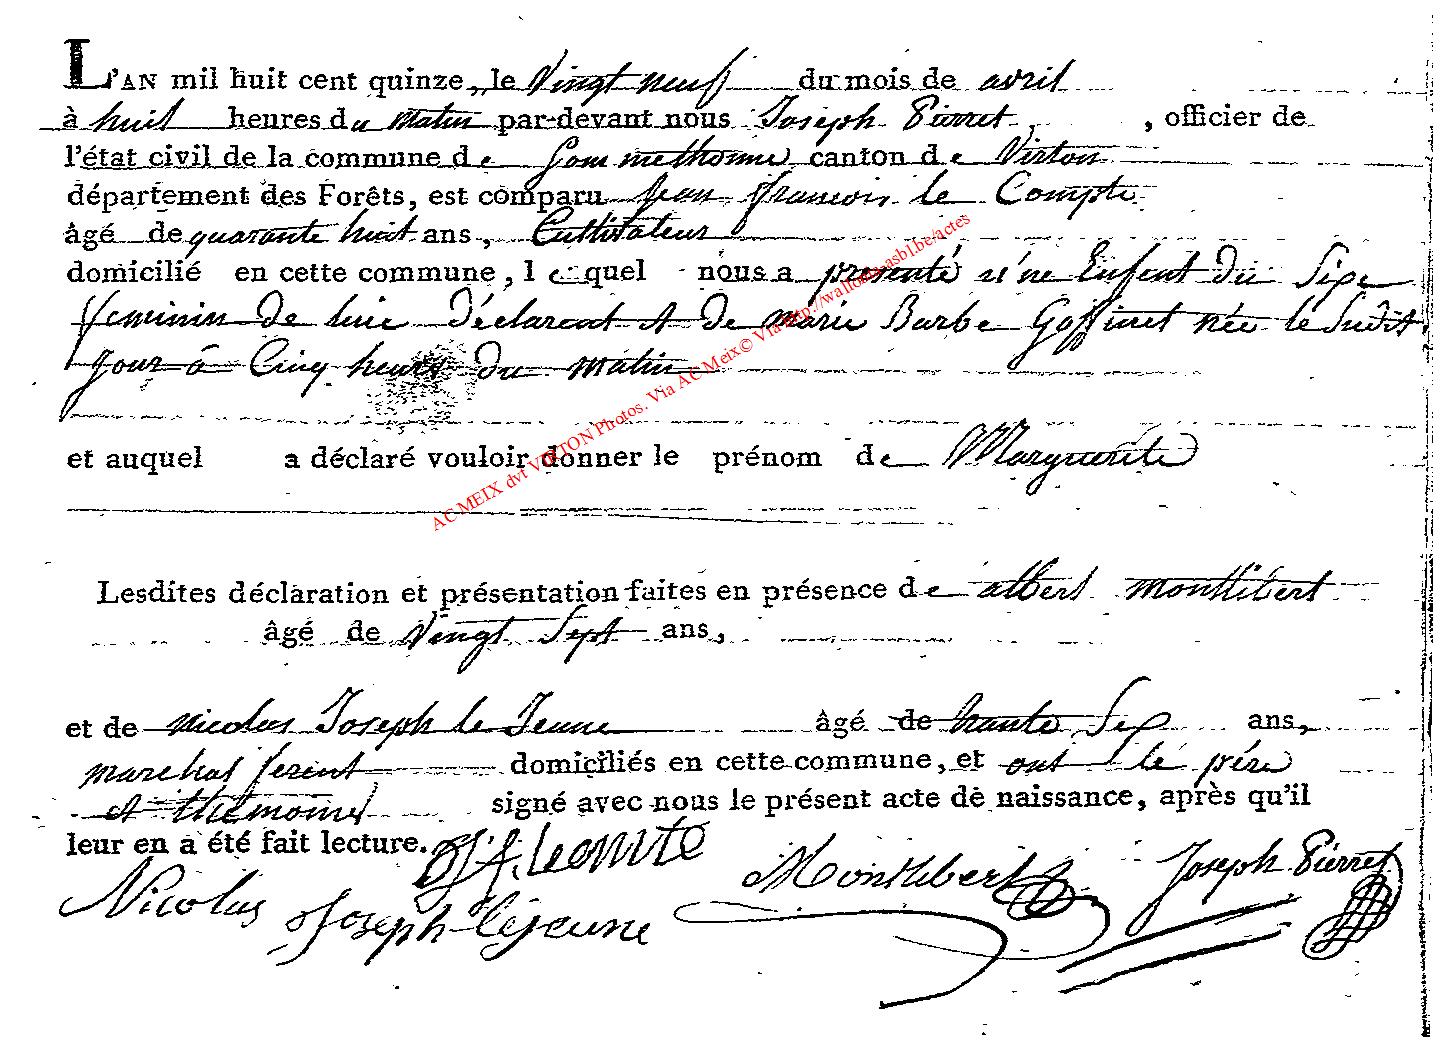 L'AN mil huit cent quinze, le Vingt neuf du mois de avril
à huit heures du matin par-devant nous Joseph Pierret, officier de
l'état civil de la commune de Sommethonne canton de Virton
département des Forêts, est comparu Jean francois le Compte
âgé de quarante huit ans, Cultivateur
domicilié en cette commune, lequel nous a presenté u'ne Enfent du Sixe
feminin de luie déclarent et de Marie Barbe Goffinet née le Sudit
jour à Cinq heures du matin
et auquel a déclaré vouloir donner le prénom de Marguerite
Lesdites déclaration et présentation faites en présence de albert montlibert
âgé de Vingt Sept ans,
et de nicolas Joseph le Jeune âgé de trante Six ans,
marchal ferent domiciliés en cette commune, et ont lé pére
et themoins signé avec nous le présent acte de naissance, après qu'il
leur en a été fait lecture. J f. lecomte
Montlibert Joseph Pierret
Nicolas Joseph lejeune
AC MEIX dvt VIRTON Photos. Via AC Meix© Via http://wallonia-asbl.be/actes